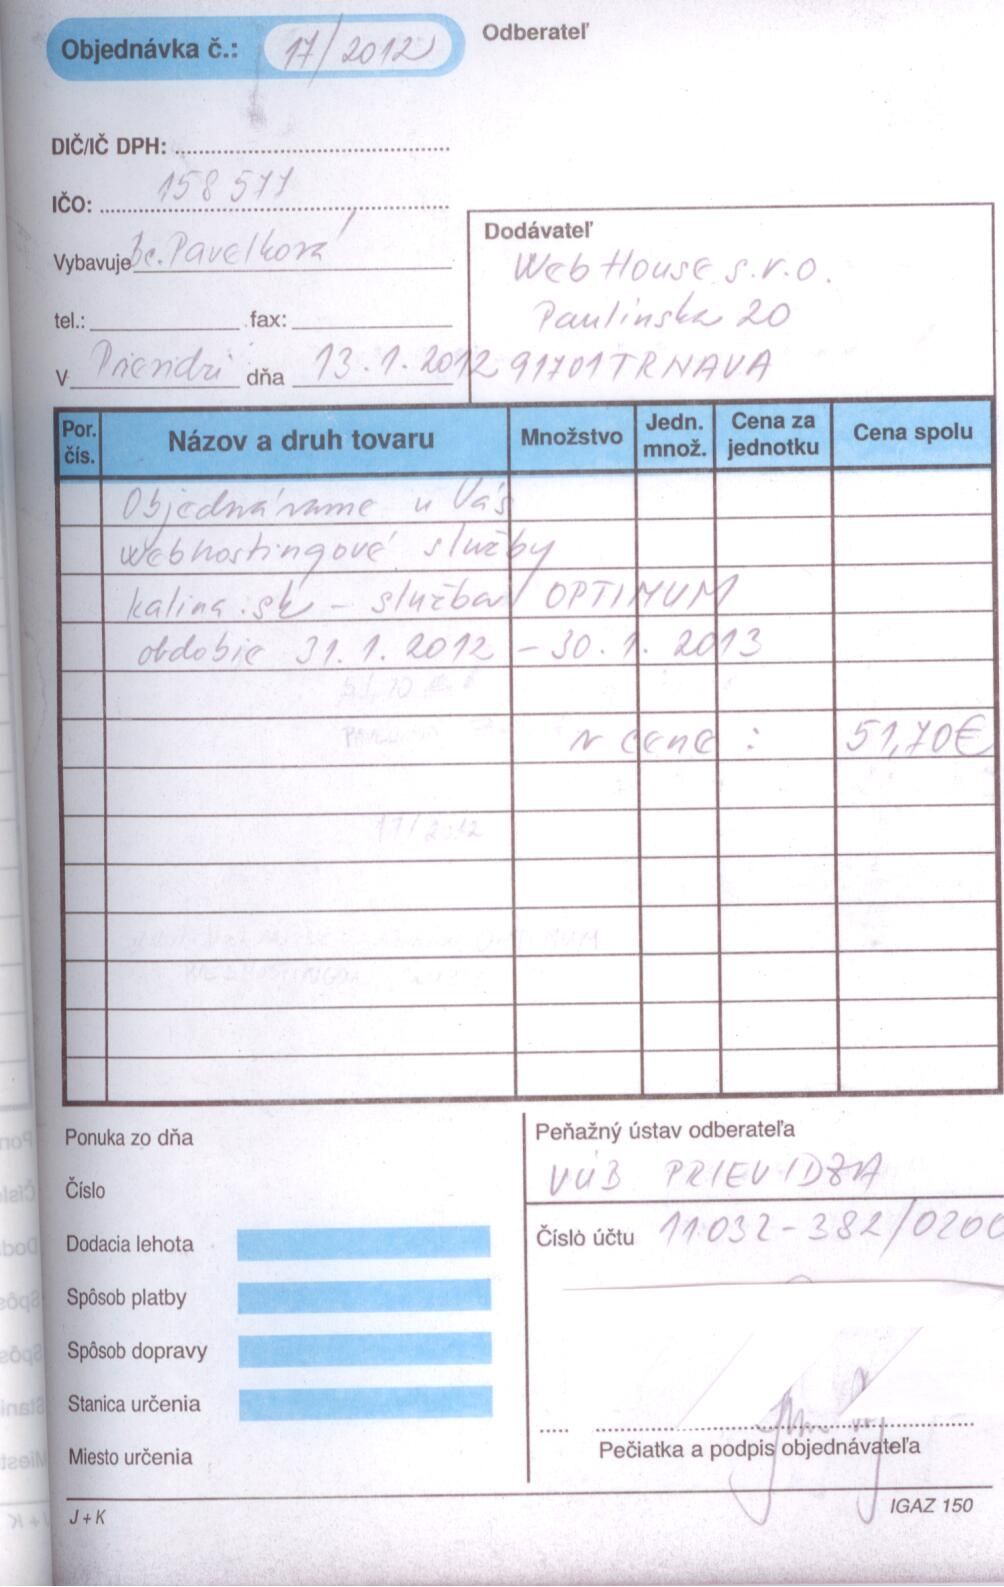 Objednávka č.: 17/2012
Odberateľ
DIČ/IČ DPH:
IČO: 158 577
Vybavuje Bc. Pavelková
tel.: fax:
V Prievidzi dňa 13.1.2012
Dodávateľ
WebHouse s.r.o.
Paulínska 20
91701 TRNAVA
Por. čís. Názov a druh tovaru Množstvo Jedn. množ. Cena za jednotku Cena spolu
Objednávame u Vás
webhostingové služby
kalina.sk – služba OPTIMUM
obdobie 31.1.2012 – 30.1.2013
v cene : 51,70€
17/2012
Ponuka zo dňa
Číslo
Dodacia lehota
Spôsob platby
Spôsob dopravy
Stanica určenia
Miesto určenia
Peňažný ústav odberateľa
VÚB PRIEVIDZA
Číslo účtu 11032-382/0200
Pečiatka a podpis objednávateľa
J + K
IGAZ 150